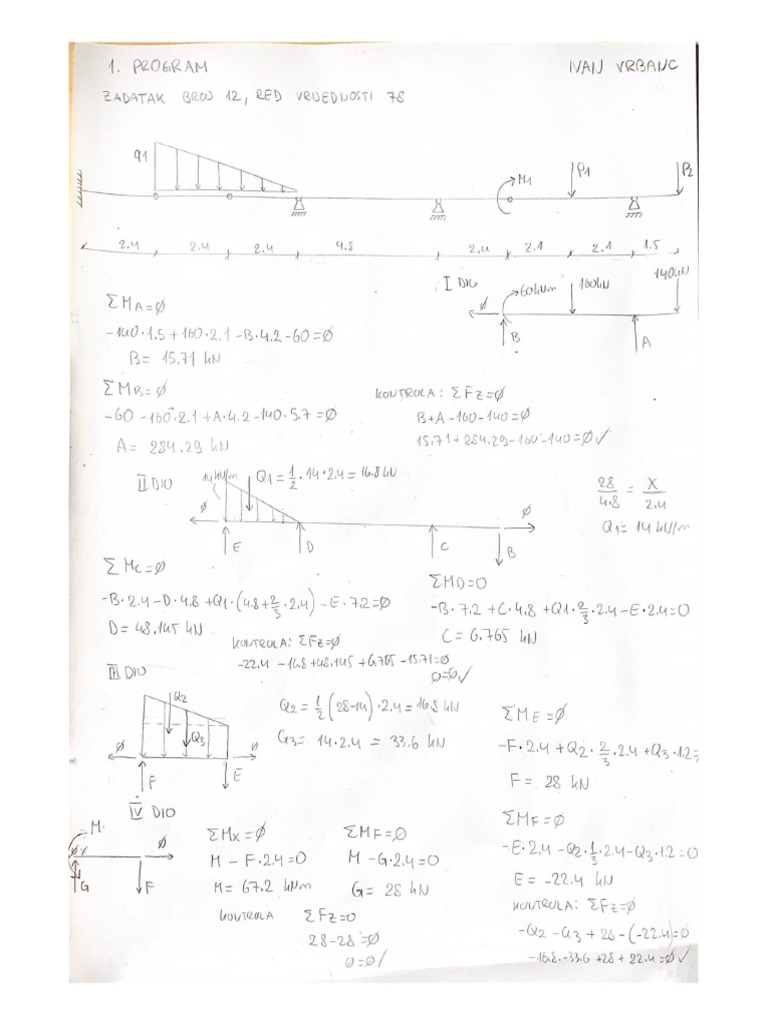 1. PROGRAM IVAN VRBANC
ZADATAK BROJ 12, RED VRIJEDNOSTI 78
q1 M1 P1 P2
2.4 2.4 2.4 4.8 2.4 2.1 2.1 1.5
I DIO ∅ 60kNm 160kN 140kN
B A
ΣMA=∅
-140·1.5+160·2.1-B·4.2-60=∅
B= 15.71 kN
ΣMB=∅
-60-160·2.1+A·4.2-140·5.7=∅
A= 284.29 kN
KONTROLA: ΣFz=∅
B+A-160-140=∅
15.71+284.29-160-140=∅✓
II DIO 14kN/m Q1=1/2·14·2.4=16.8kN
∅ E D C B ∅
28/4.8 = X/2.4
Q1=14kN/m
ΣMC=∅
-B·2.4-D·4.8+Q1·(4.8+2/3·2.4)-E·7.2=∅
D=48.145 kN
ΣMD=0
-B·7.2+C·4.8+Q1·2/3·2.4-E·2.4=0
C=6.765 kN
KONTROLA: ΣFz=∅
-22.4-16.8+48.145+6.765-15.71=∅
0=∅✓
III DIO
Q2 Q3
∅ F E ∅
Q2=1/2(28-14)·2.4=16.8 kN
Q3= 14·2.4 = 33.6 kN
ΣME=∅
-F·2.4+Q2·2/3·2.4+Q3·1.2=
F= 28 kN
ΣMF=∅
-E·2.4-Q2·1/3·2.4-Q3·1.2=0
E=-22.4 kN
KONTROLA: ΣFz=∅
-Q2-Q3+28-(-22.4)=0
-16.8-33.6+28+22.4=∅✓
IV DIO
M ∅ X G F ∅
ΣMx=∅
M-F·2.4=0
M=67.2 kNm
ΣMF=0
M-G·2.4=0
G=28 kN
KONTROLA ΣFz=0
28-28=∅
0=∅✓